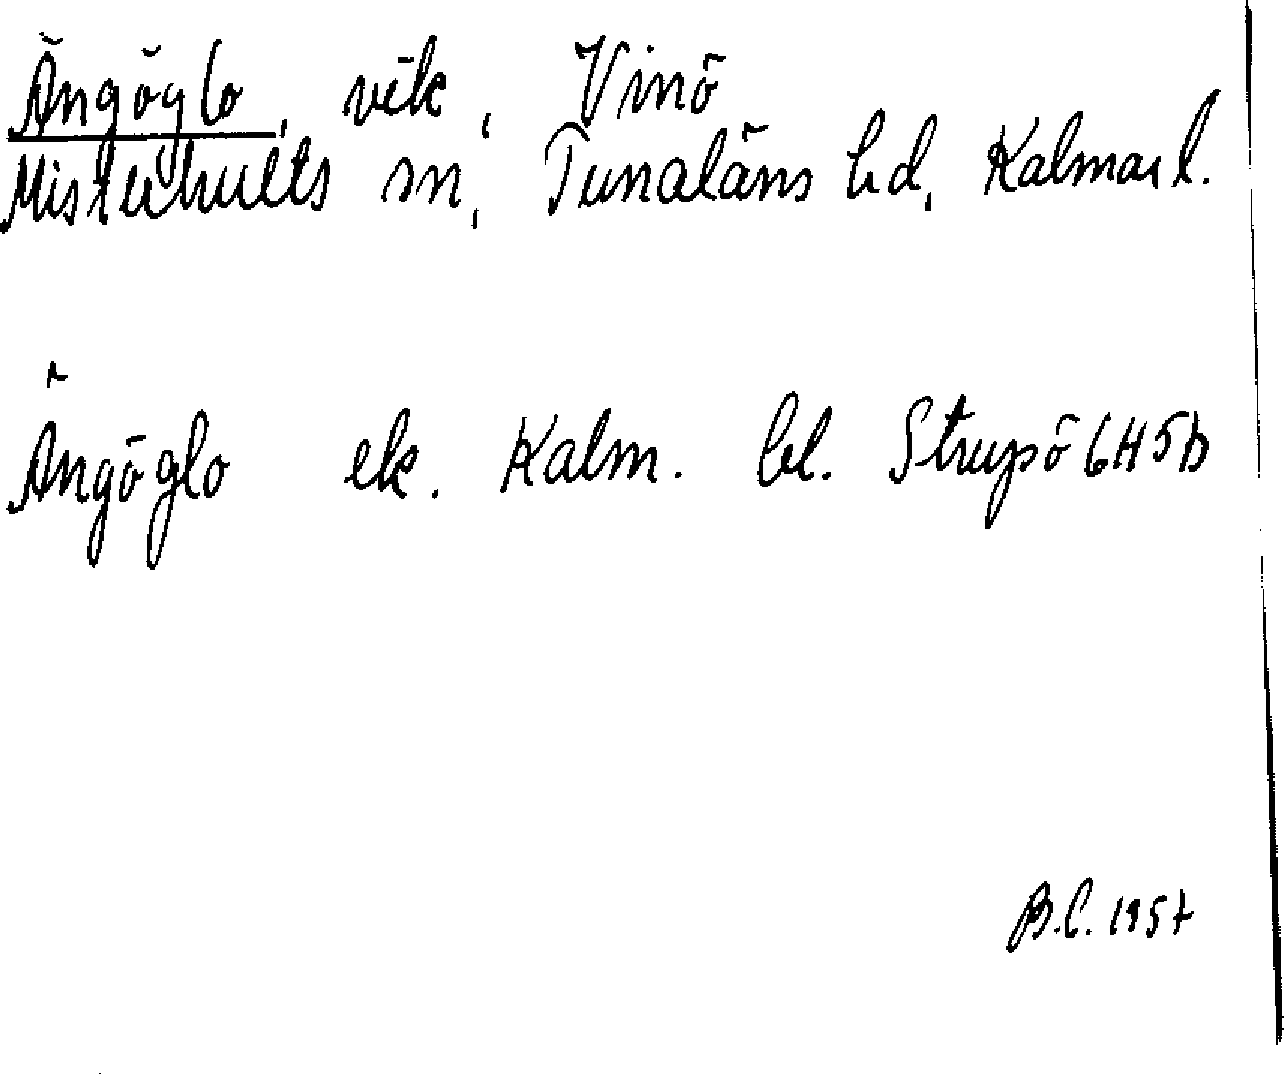 Ängöglo, vik, Vinö
Misterhults sn, Tunaläns hd, Kalmar l.
Ängöglo ek. Kalm. bl. Strupö 6H5b
B.C. 1957